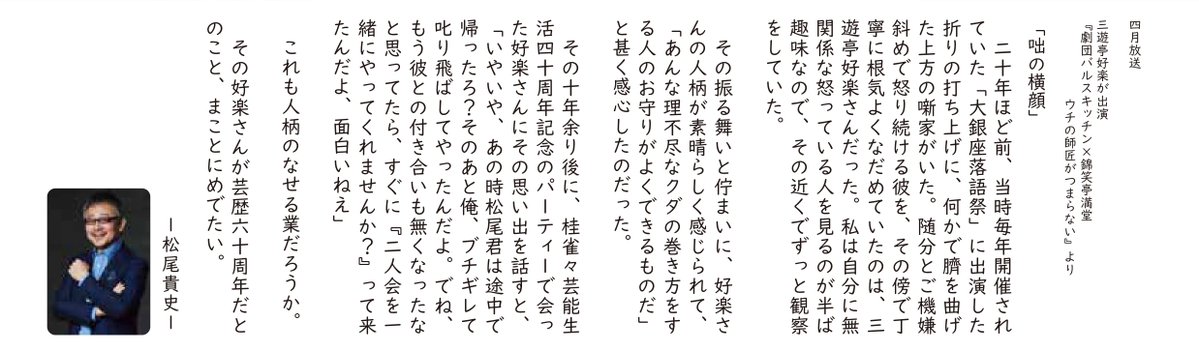 四月放送
三遊亭好楽が出演
『劇団パルスキッチン×錦笑亭満堂
ウチの師匠がつまらない』より
「咄の横顔」
二十年ほど前、当時毎年開催され
ていた「大銀座落語祭」に出演した
折りの打ち上げに、何かで臍を曲げ
た上方の噺家がいた。随分とご機嫌
斜めで怒り続ける彼を、その傍で丁
寧に根気よくなだめていたのは、三
遊亭好楽さんだった。私は自分に無
関係な怒っている人を見るのが半ば
趣味なので、その近くでずっと観察
をしていた。
その振る舞いと佇まいに、好楽さ
んの人柄が素晴らしく感じられて、
「あんな理不尽なクダの巻き方をす
る人のお守りがよくできるものだ」
と甚く感心したのだった。
その十年余り後に、桂雀々芸能生
活四十周年記念のパーティーで会っ
た好楽さんにその思い出を話すと、
「いやいや、あの時松尾君は途中で
帰ったろ?そのあと俺、ブチギレて
叱り飛ばしてやったんだよ。でね、
もう彼との付き合いも無くなったな
と思ってたら、すぐに『二人会を一
緒にやってくれませんか?』って来
たんだよ、面白いねえ」
これも人柄のなせる業だろうか。
その好楽さんが芸歴六十周年だと
のこと、まことにめでたい。
ー松尾貴史ー